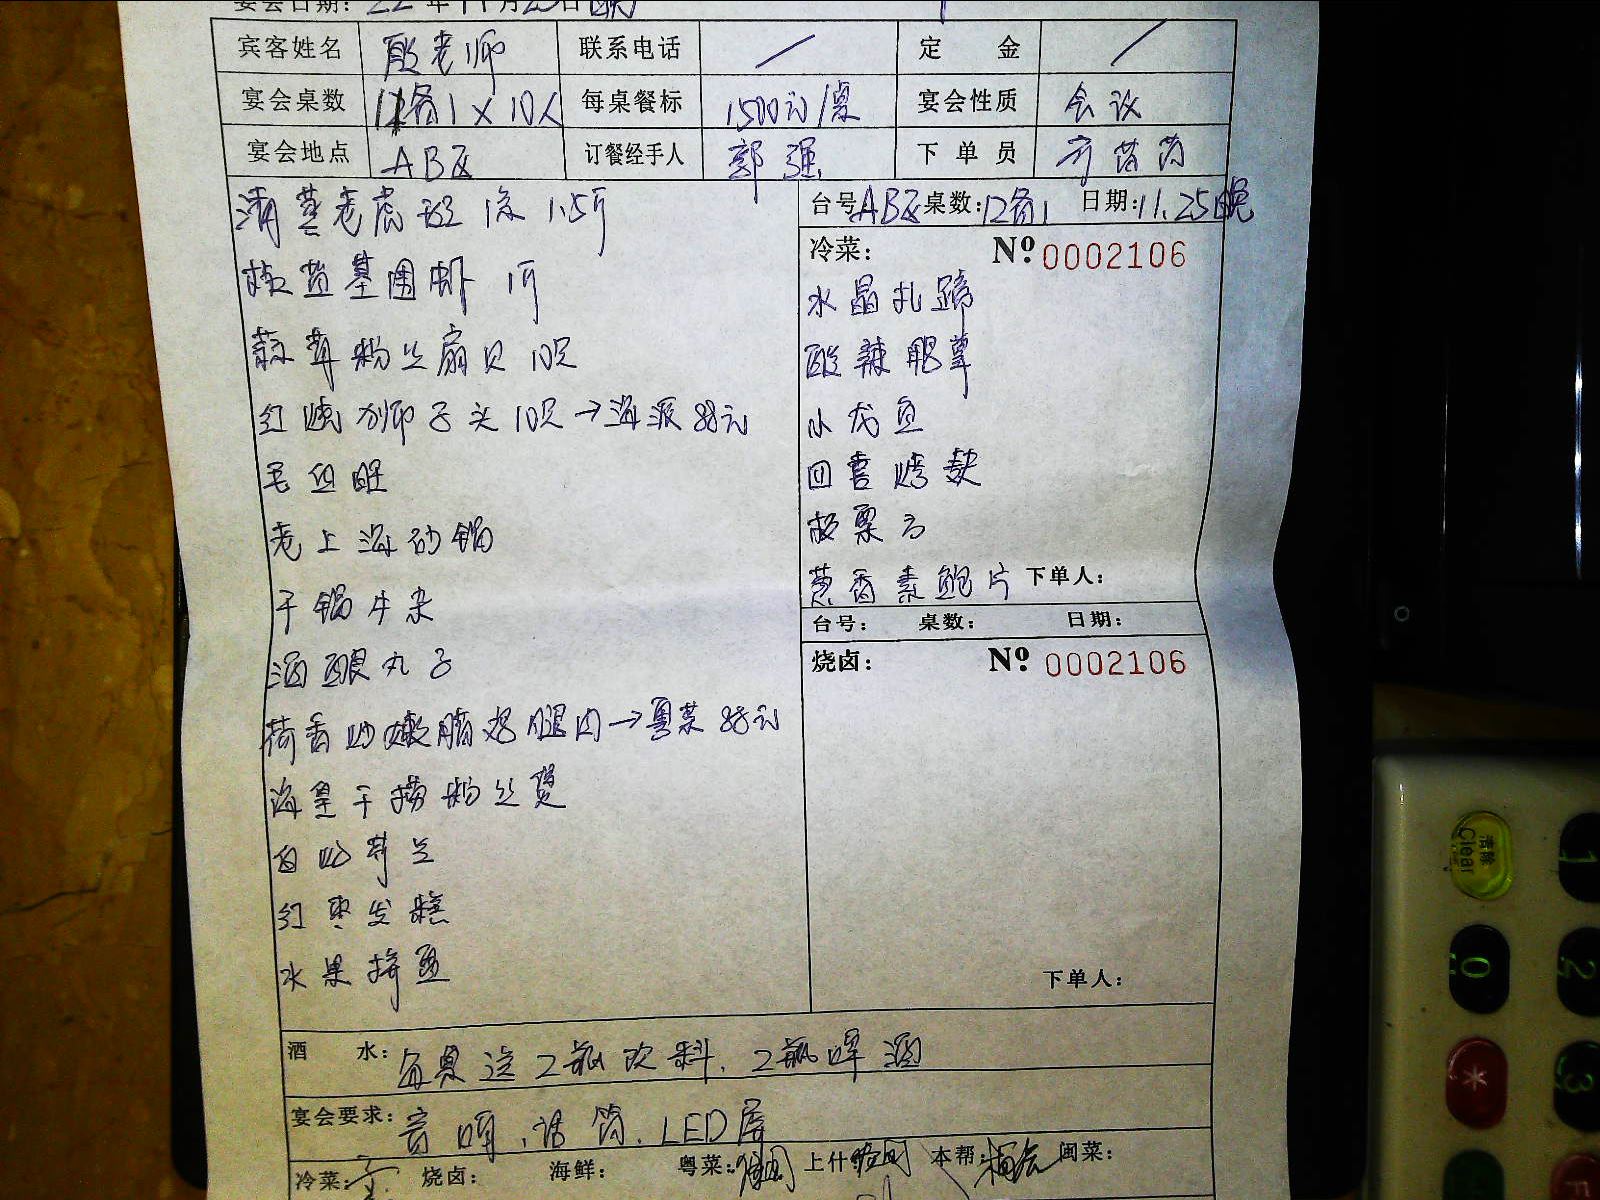 宴会日期: 22年11月25日晚
宾客姓名 殷老师 联系电话 / 定 金 /
宴会桌数 12备1×10人 每桌餐标 1500元/桌 宴会性质 会议
宴会地点 AB区 订餐经手人 郭强 下单员
清蒸老虎斑 1条 1.5斤
椒盐基围虾 1斤
蒜茸粉丝扇贝 10只
红烧狮子头 10只→海派88元
毛血旺
老上海砂锅
干锅牛杂
酒酿丸子
荷香 嫩腩鸡腿肉→粤菜88元
海皇干捞粉丝煲
白灼芥兰
红枣发糕
水果拼盘
台号:AB区 桌数:12备1 日期:11.25晚
冷菜: Nº 0002106
水晶扎蹄
酸辣肥草
小龙鱼
四喜烤麸
板栗方
葱香素鲍片 下单人:
台号: 桌数: 日期:
烧卤: Nº 0002106
下单人:
酒 水: 每桌送2瓶饮料.2瓶啤酒
宴会要求: 音响.话筒.LED屏
冷菜: 烧卤: 海鲜: 粤菜: 上什 本帮: 闽菜:
清除
Clear
1
0
2
*
3